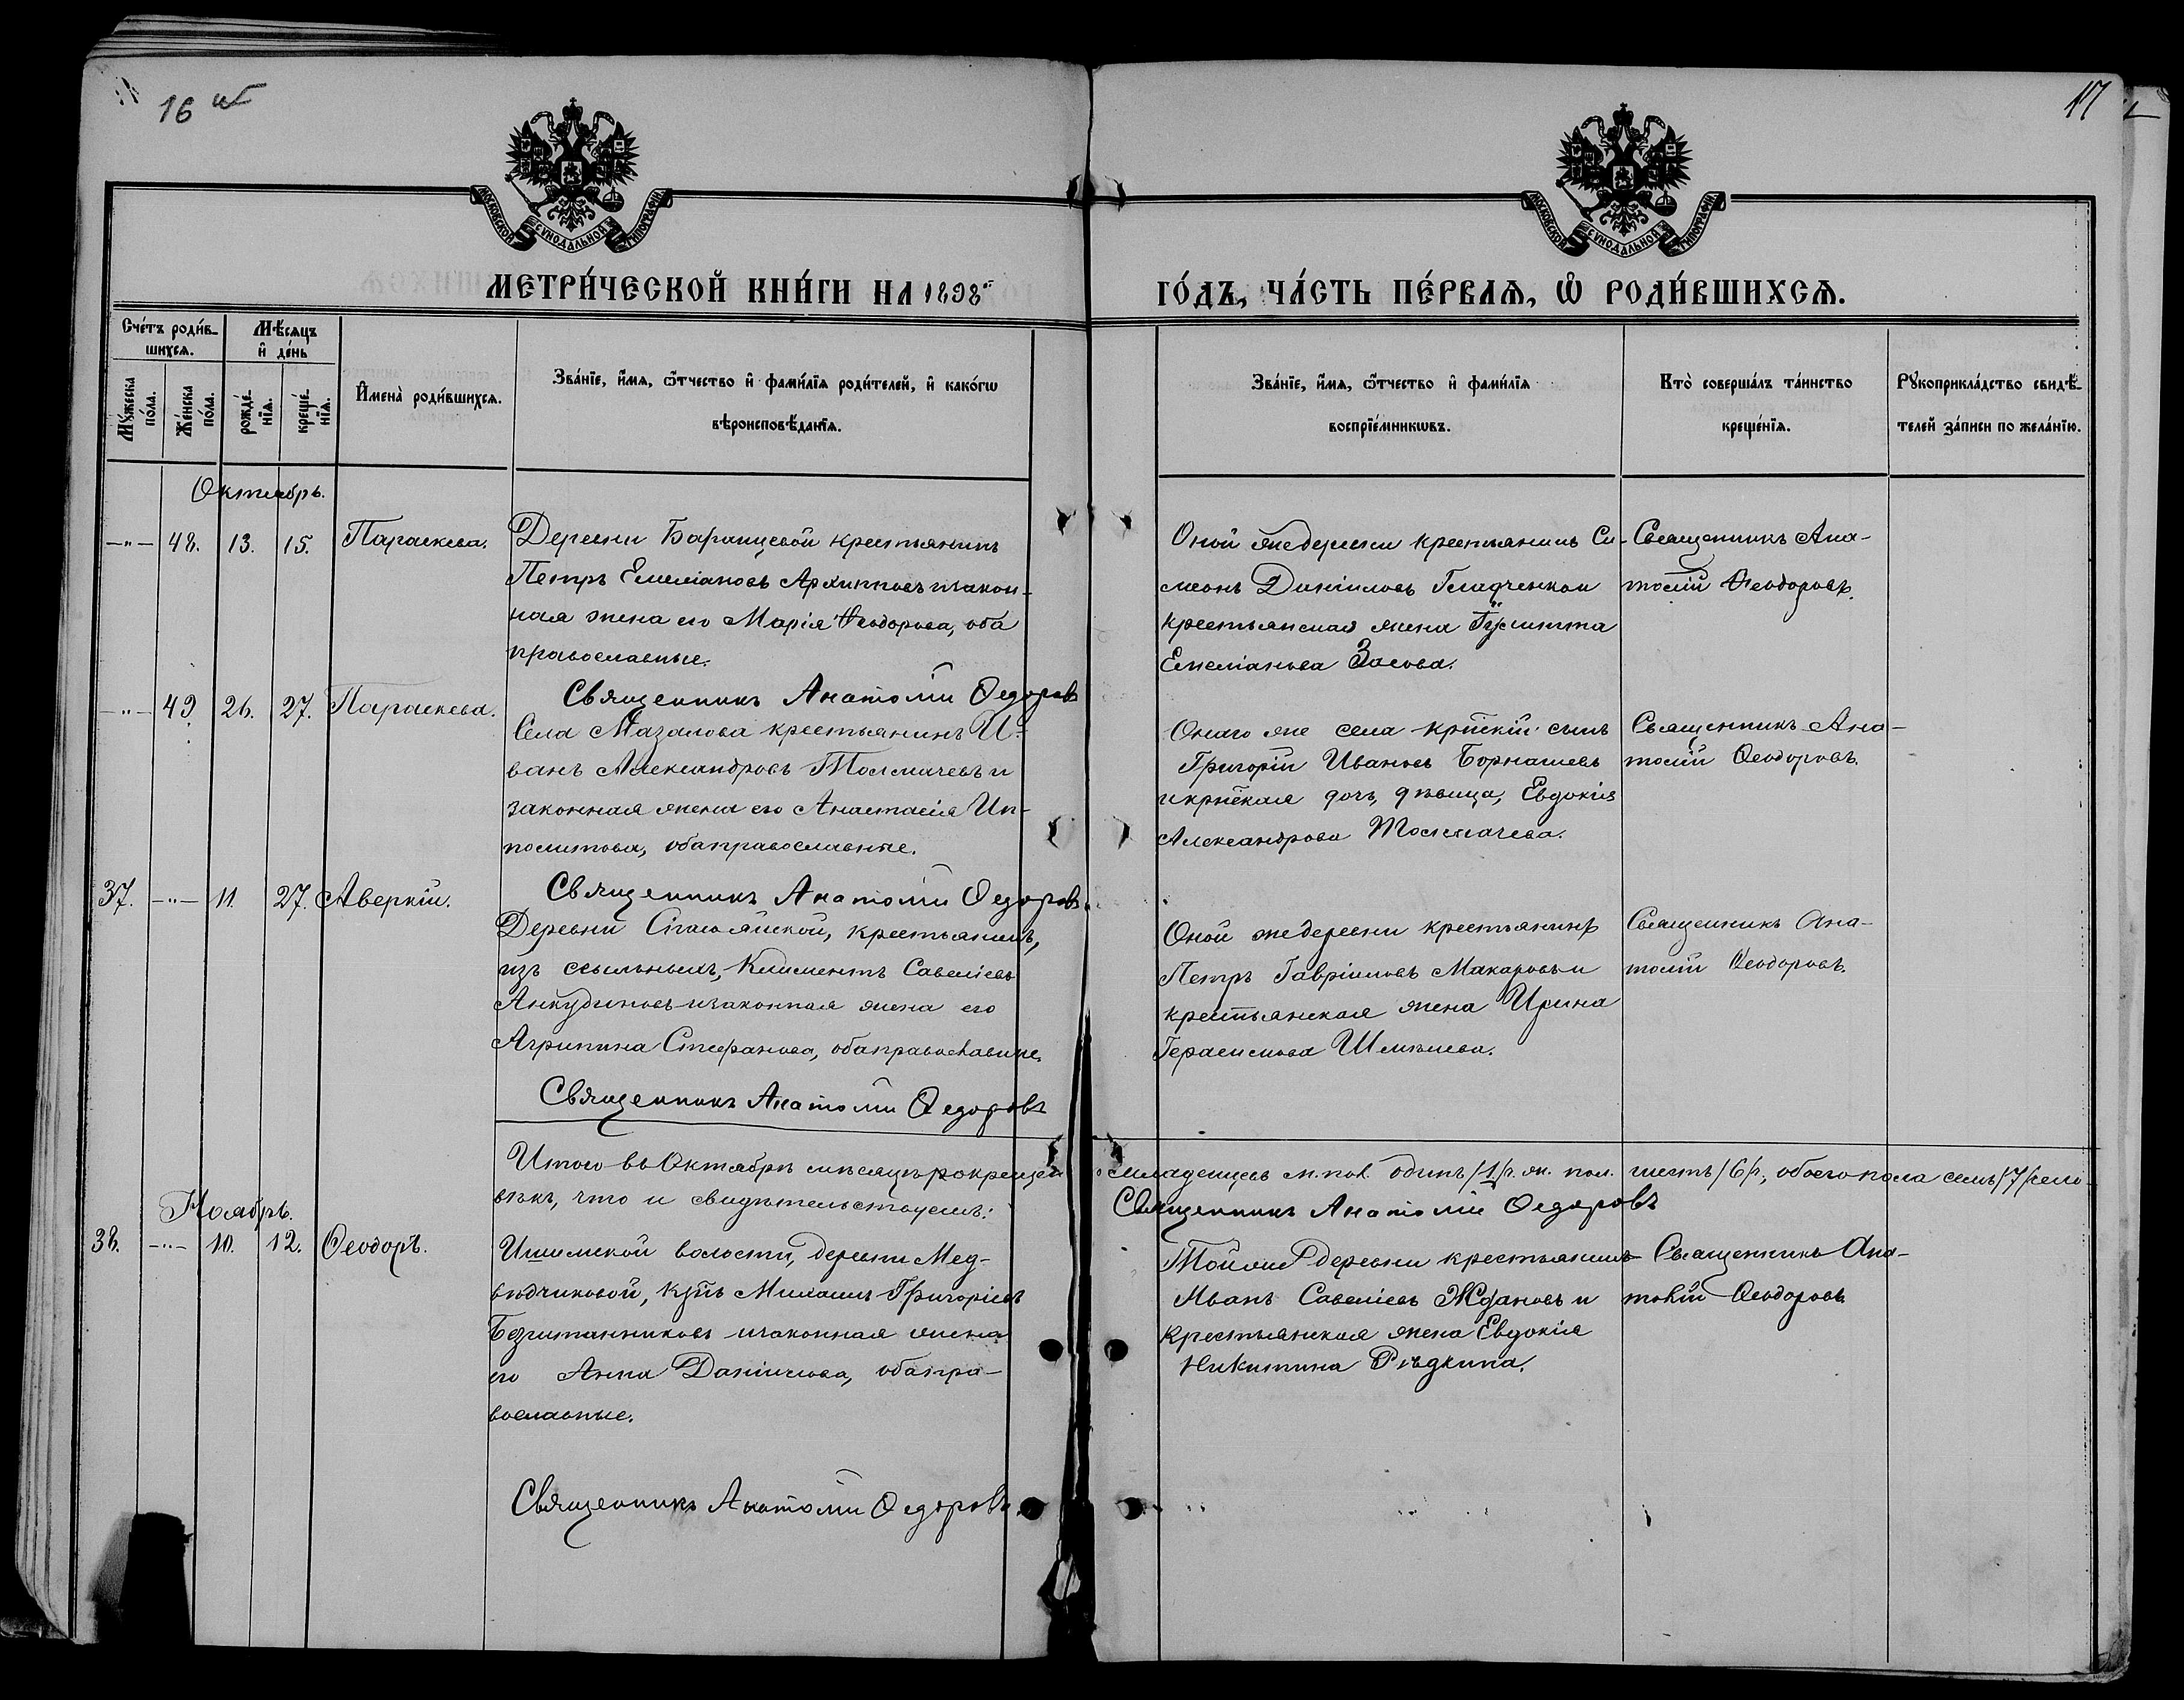 16 об
17
МОСКОВСКОЙ СѴНОДАЛЬНОЙ ТИПОГРАФІИ
МОСКОВСКОЙ СѴНОДАЛЬНОЙ ТИПОГРАФІИ
МЕТРИ́ЧЕСКОЙ КНИ́ГИ НА 1898й ГО́ДЪ, ЧА́СТЬ ПЕ́РВАѦ, Ѡ РОДИ́ВШИХСѦ.
Сче́тъ роди́в-
шихсѧ.
Мѣ́сѧцъ
и҆ де́нь
Мꙋ́жеска
по́ла.
Же́нска
по́ла.
рожде́-
нїѧ.
креще́-
нїѧ.
И҆мена̀ роди́вшихсѧ.
Зва́нїе, и҆́мѧ, ѻ҆́тчество и҆ фами́лїѧ роди́телей, и҆ како́гѡ
вѣроисповѣ́данїѧ.
Зва́нїе, и҆́мѧ, ѻ҆́тчество и҆ фами́лїѧ
воспрїе́мникѡвъ.
Кто̀ соверша́лъ та́инство
креще́нїѧ.
Рꙋкоприкла́дство свидѣ́-
телей за́писи по жела́нїю.
Октябрь.
—"— 48. 13. 15. Параскева.
Деревни Баранцевой крестьянинъ
Петръ Емеліановъ Архиповъ и закон-
ная жена его Марія Ѳеодорова, оба
православные.
Священникъ Анатолій Ѳедоровъ
Оной же деревни крестьянинъ Си-
меонъ Даніиловъ Гладченко и
крестьянская жена
Емеліанова Засова.
Священникъ Ана-
толій Ѳеодоровъ.
—"— 49. 26. 27. Параскева.
Села Мазалова крестьянинъ И-
ванъ Александровъ Толмачевъ и
законная жена его Анастасія Ип-
политова, оба православные.
Священникъ Анатолій Ѳедоровъ.
Онаго же села крпскій сынъ
Григорій Ивановъ Борнашевъ
и крпская дочь, дѣвица, Евдокія
Александрова Толмачева.
Священникъ Ана-
толій Ѳеодоровъ.
37. —"— 11. 27. Аверкій.
Деревни крестьянинъ,
изъ ссыльныхъ, Климентъ Савеліевъ
Анкудиновъ и законная жена его
Агрипина Стефанова, оба православные.
Священникъ Анатолій Ѳедоровъ
Оной же деревни крестьянинъ
Петръ Гавріиловъ Макаровъ и
крестьянская жена Ирина
Герасимова Шмелева.
Священникъ Ана-
толій Ѳеодоровъ.
Итого въ Октябрѣ мѣсяцѣ рокрещено младенцевъ м. пол. одинъ /1/, ж. пол. шесть /6/, обоего пола семь /7/ чело-
вѣкъ, что и свидѣтельствуемъ:
Священникъ Анатолій Ѳедоровъ
Ноябрь.
38. —"— 10. 12. Ѳеодоръ.
Ишимской волости, деревни Мед-
вѣдчиковой, кр҃нъ Михаилъ Григоріевъ
и законная жена
его Анна Даніилова, оба пра-
вославные.
Священникъ Анатолій Ѳедоровъ.
Той же деревни крестьянинъ
Иванъ Савеліевъ Ждановъ и
крестьянская жена Евдокія
Никитина Рѣдкина.
Священникъ Ана-
толій Ѳеодоровъ.